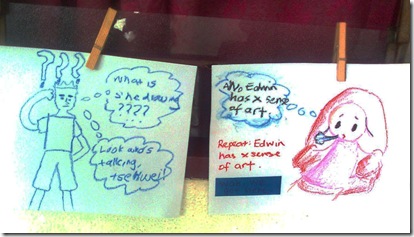 ? ? ?
What is
she drawing
????
Look and s
talking
Ano Edwin
has x sense
of art.
Repeat: Edwin
has x sense
of art.